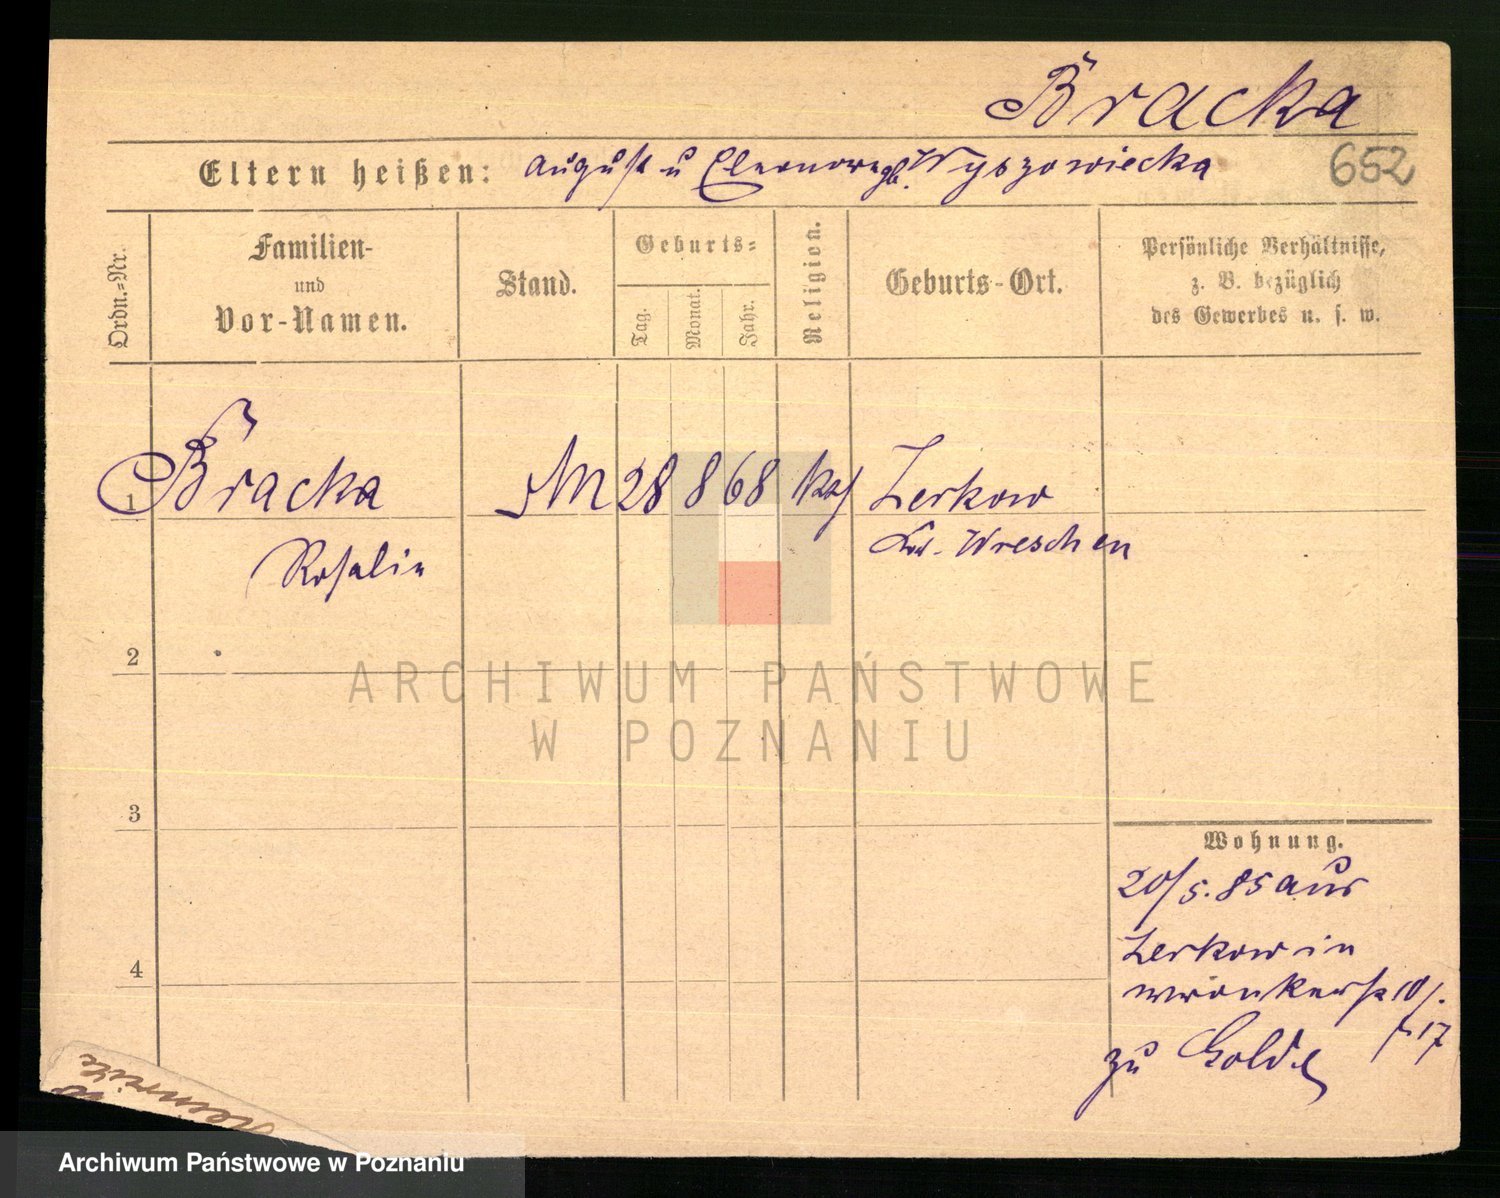 Bracka
Eltern heißen: August u Eleonore gb. Wyszowiecka
652
Ordn.=Nr.
Familien-
und
Vor-Namen.
Stand.
Geburts=
Tag.
Monat.
Jahr.
Religion.
Geburts-Ort.
Persönliche Verhältnisse,
z. B. bezüglich
des Gewerbes u. s. w.
1 Bracka 28 8 68 Zerkow
Rosalie Wreschen
2
3
4
Wohnung.
20/5. 85 aus
Zerkow in
Wronkerstr 10/.
17
zu
ARCHIWUM PAŃSTWOWE
W POZNANIU
Archiwum Państwowe w Poznaniu